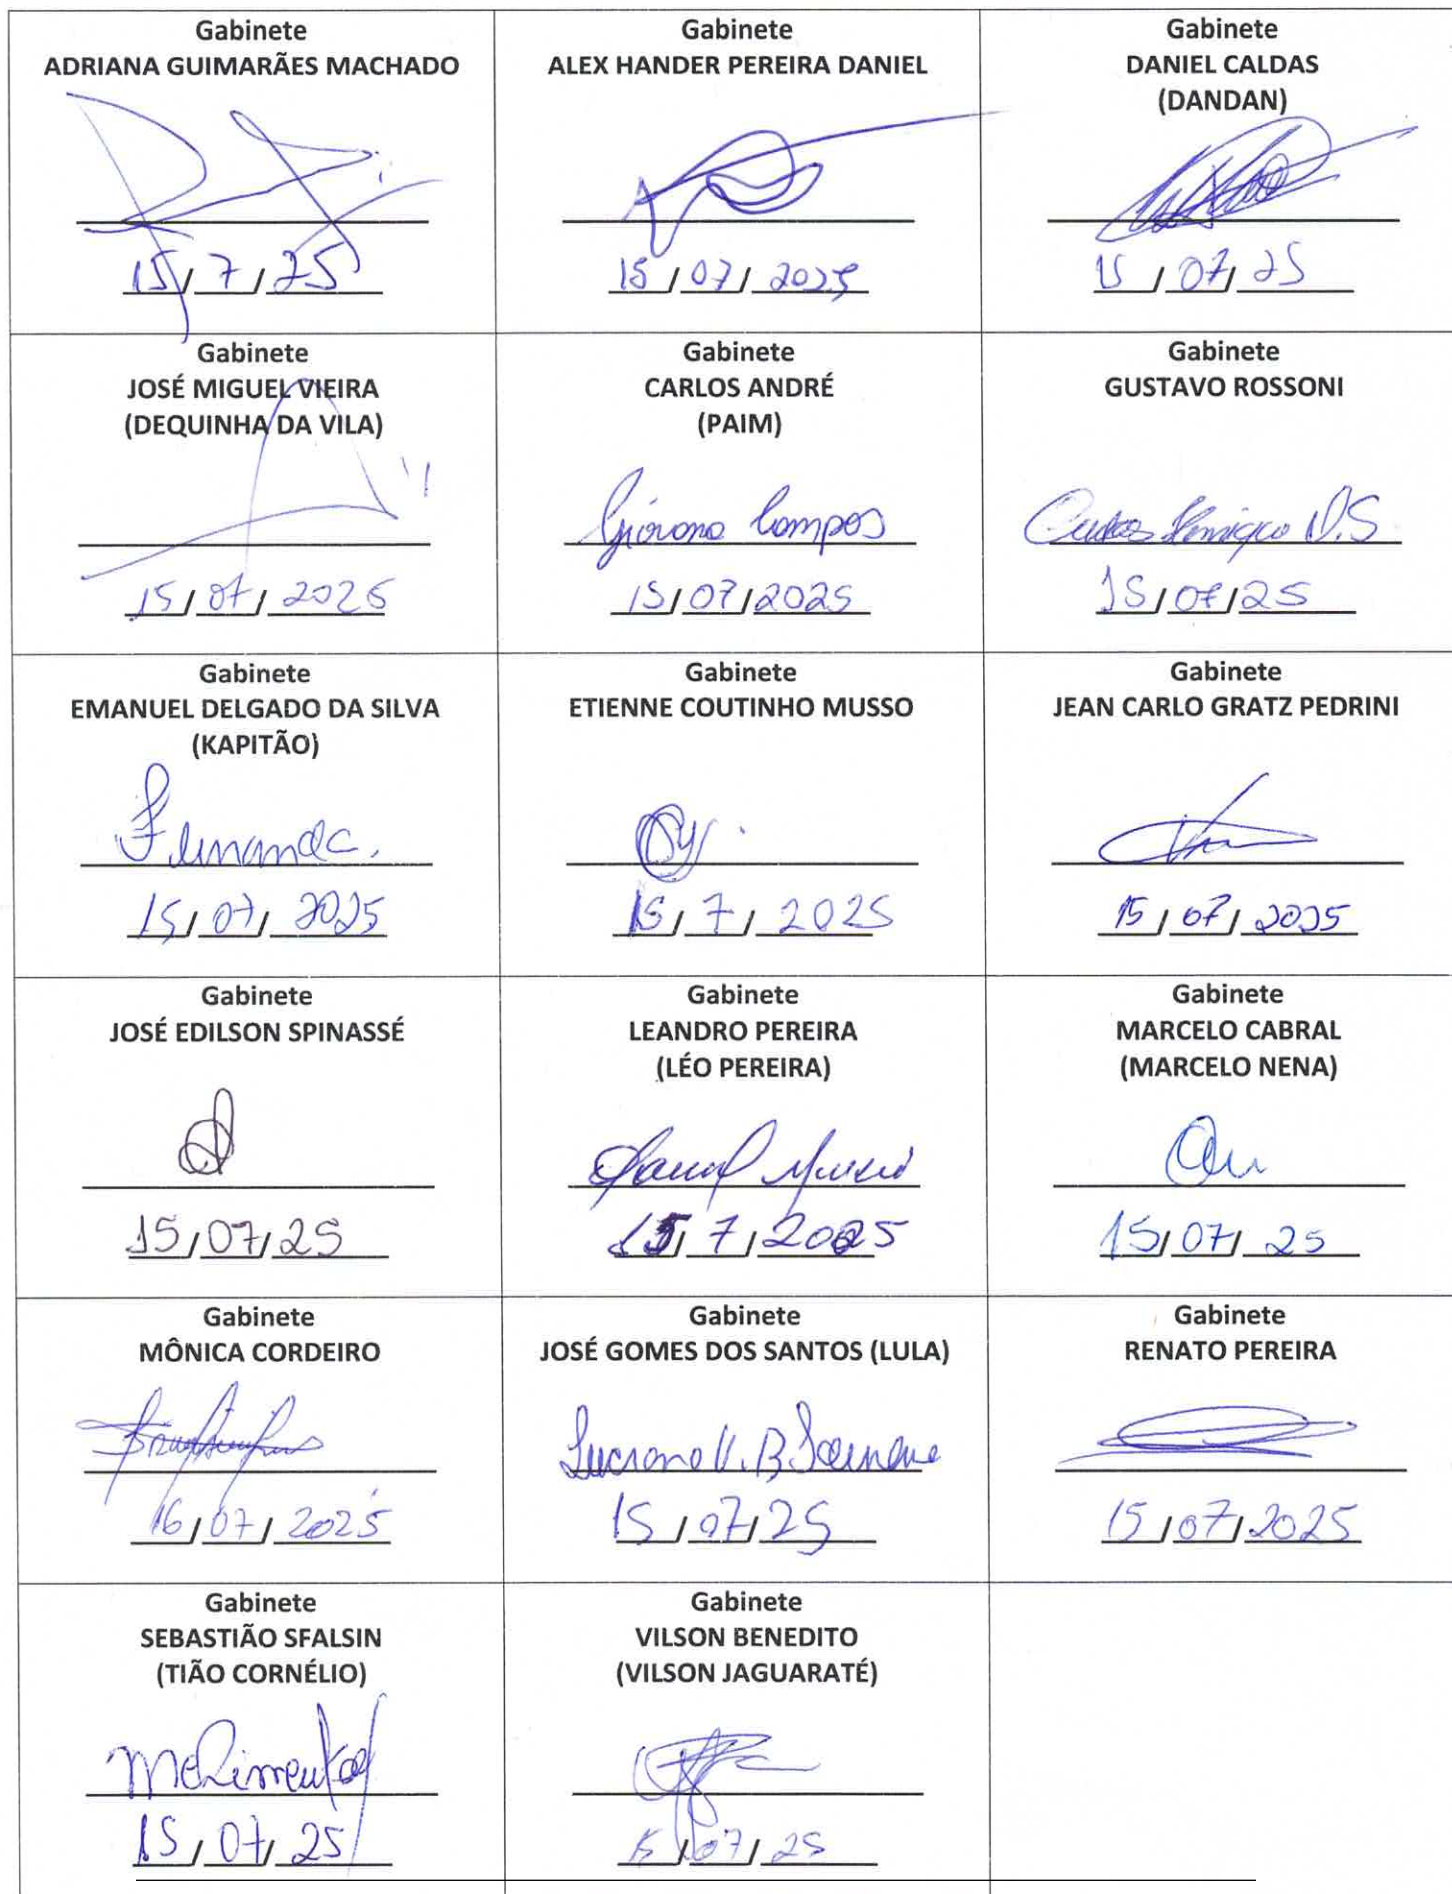 Gabinete
ADRIANA GUIMARÃES MACHADO
15/7/25
Gabinete
ALEX HANDER PEREIRA DANIEL
15/07/2025
Gabinete
DANIEL CALDAS
(DANDAN)
15/07/25
Gabinete
JOSÉ MIGUEL VIEIRA
(DEQUINHA DA VILA)
15/07/2025
Gabinete
CARLOS ANDRÉ
(PAIM)
Giovana Campos
15/07/2025
Gabinete
GUSTAVO ROSSONI
Henrique
15/07/25
Gabinete
EMANUEL DELGADO DA SILVA
(KAPITÃO)
15/07/2025
Gabinete
ETIENNE COUTINHO MUSSO
15/7/2025
Gabinete
JEAN CARLO GRATZ PEDRINI
15/07/2025
Gabinete
JOSÉ EDILSON SPINASSÉ
15/07/25
Gabinete
LEANDRO PEREIRA
(LÉO PEREIRA)
15/7/2025
Gabinete
MARCELO CABRAL
(MARCELO NENA)
15/07/25
Gabinete
MÔNICA CORDEIRO
16/07/2025
Gabinete
JOSÉ GOMES DOS SANTOS (LULA)
Luciano V. B.
15/07/25
Gabinete
RENATO PEREIRA
15/07/2025
Gabinete
SEBASTIÃO SFALSIN
(TIÃO CORNÉLIO)
15/07/25
Gabinete
VILSON BENEDITO
(VILSON JAGUARATÉ)
15/07/25